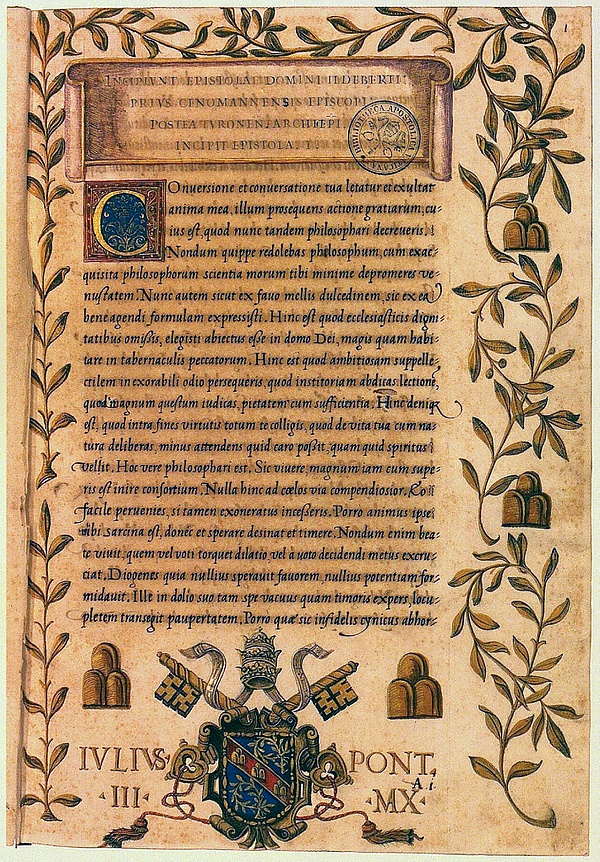 1
INCIPIVNT EPISTOLAE DOMINI ILDEBERTI
PRIVS CENOMANNENSIS EPISCOPI
POSTEA TVRONEN, ARCHIEPI.
INCIPIT EPISTOLA. I.
BIBLIOTECA APOSTOLICA VATICANA
COnuersione et conuersatione tua letatur et exultat
anima mea, illum prosequens actione gratiarum, cu-
ius est, quod nunc tandem philosophari decreueris.
Nondum quippe redolebas philosophum, cum exac
quisita philosophorum scientia morum tibi minime depromeres ve-
nustatem. Nunc autem sicut ex fauo mellis dulcedinem, sic ex ea
bene agendi formulam expressisti. Hinc est quod ecclesiasticis digni
tatibus omissis, elegisti abiectus esse in domo Dei, magis quam habi
tare in tabernaculis peccatorum. Hinc est quod ambitiosam suppelle
ctilem inexorabili odio persequeris, quod institoriam abdicas lectione,
quod magnum questum iudicas, pietatem cum sufficientia. Hinc deniq
est, quod intra fines virtutis totum te colligis, quod de vita tua cum na
tura deliberas, minus attendens quid caro possit, quam quid spiritus
vellit. Hoc vere philosophari est. Sic viuere, magnum iam cum supe-
ris est inire consortium. Nulla hinc ad cœlos via compendiosior. Eo
facile peruenies, si tamen exoneratus incesseris. Porro animus ipse
sibi sarcina est, donec et sperare desinat et timere. Nondum enim bea-
te viuit, quem vel voti torquet dilatio vel à uoto decidendi metus excru-
ciat. Diogenes quia nullius sperauit fauorem, nullius potentiam for-
midauit. Ille in dolio suo tam spe vacuus quam timoris expers, locu-
pletem transegit paupertatem. Porro quæ sic infidelis cynicus abhor-
IVLIVS PONT.
III MX
A. i.